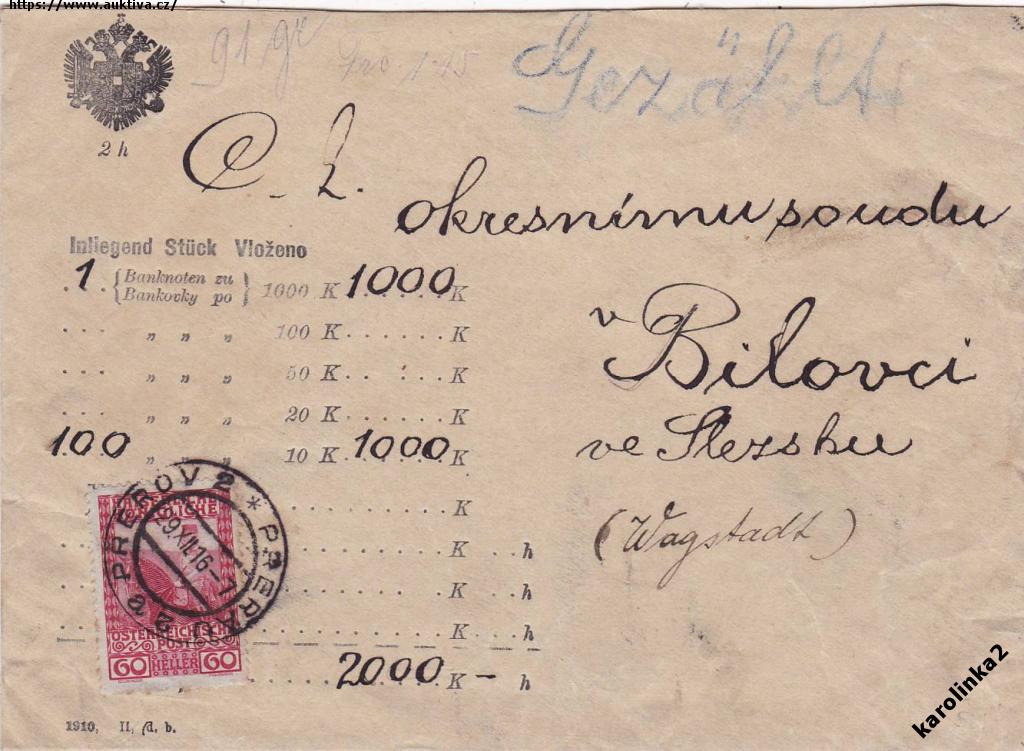 https://www.auktiva.cz/
91 gr
Gezählt
2 h
C. k.
okresnímu soudu
Inliegend Stück Vloženo
1 Banknoten zu 1000 K 1000 K
Bankovky po
" " " 100 K K
" " " 50 K K
" " " 20 K K
100 " " " 10 K 1000 K
v Bílovci
ve Slezsku
(Wagstadt)
K
K h
K h
K h
2000 K - h
PŘEROV 2 * PRERAU 2
29.XII.16
ÖSTERREICHISCHE
POST
60 HELLER 60
1910, II, /d. b.
karolinka2